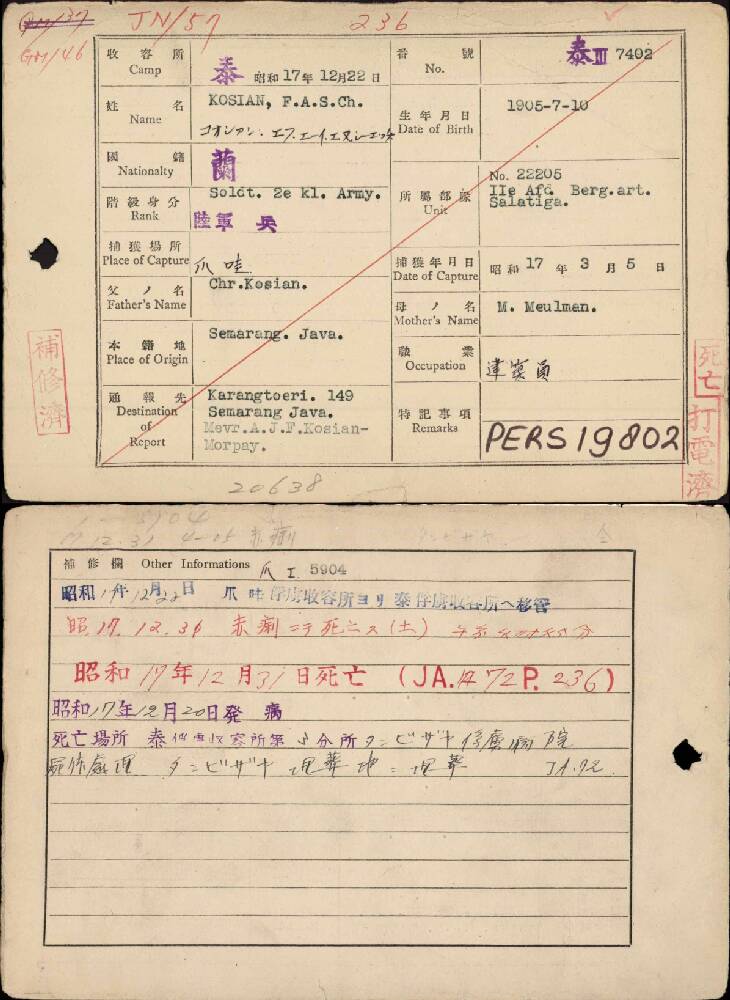 GM/37
JN/57
236
GM/46
收容所
Camp
泰 昭和17年12月22日
番號
No.
泰III 7402
姓名
Name
KOSIAN, F.A.S.Ch.
コオシアン. エフ.エーイ.エヌシーエッチ
生年月日
Date of Birth
1905-7-10
國籍
Nationalty
蘭
階級身分
Rank
Soldt. 2e kl. Army.
陸軍 兵
所屬部隊
Unit
No. 22205
IIe Afd. Berg.art.
Salatiga.
捕獲場所
Place of Capture
爪哇
捕獲年月日
Date of Capture
昭和17年3月5日
父ノ名
Father's Name
Chr.Kosian.
母ノ名
Mother's Name
M. Meulman.
本籍地
Place of Origin
Semarang. Java.
職業
Occupation
通報先
Destination of Report
Karangtoeri. 149
Semarang Java.
Mevr.A.J.F.Kosian-
Morpay.
特記事項
Remarks
PERS 19802
補修濟
死亡打電濟
20638
5904
12.31 4-05 赤痢
補修欄 Other Informations 爪 I. 5904
昭和17年12月22日 爪哇俘虜收容所ヨリ泰俘虜收容所ヘ移管
昭17.12.31 赤痢ニテ死亡ス(土)
昭和17年12月31日死亡 (JA.172P.236)
昭和17年12月20日発病
死亡場所 泰俘虜収容所第 分所タンビザヤ俘虜病院
屍体處理 タンビザヤ埋葬地ニ埋葬